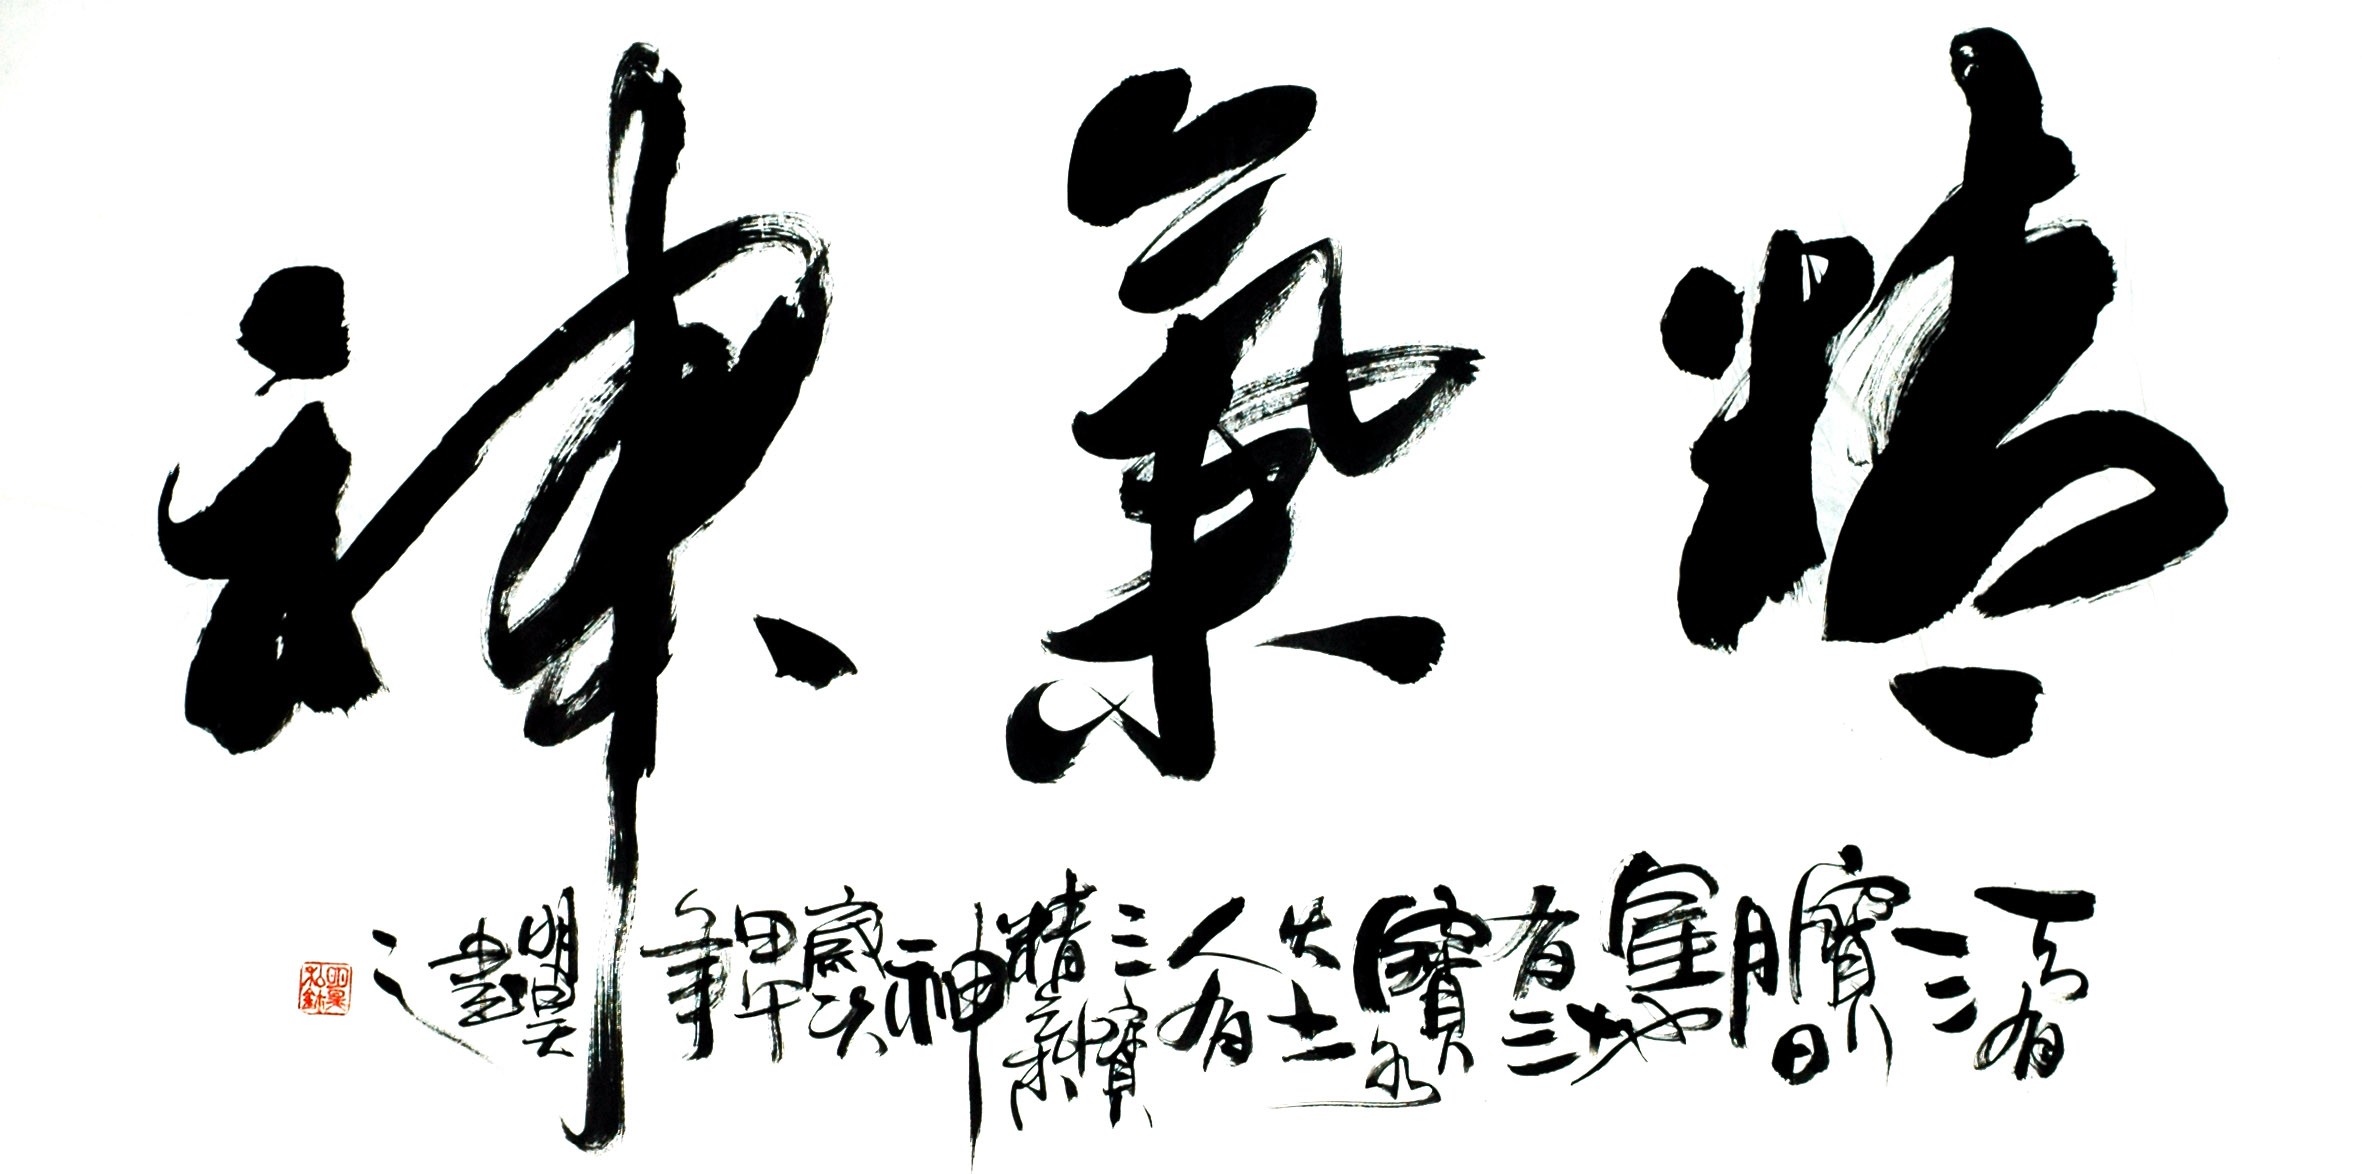 精氣神
天有三寶日月星地有三寶水火土人有三寶精氣神歲次甲午年明昊書之